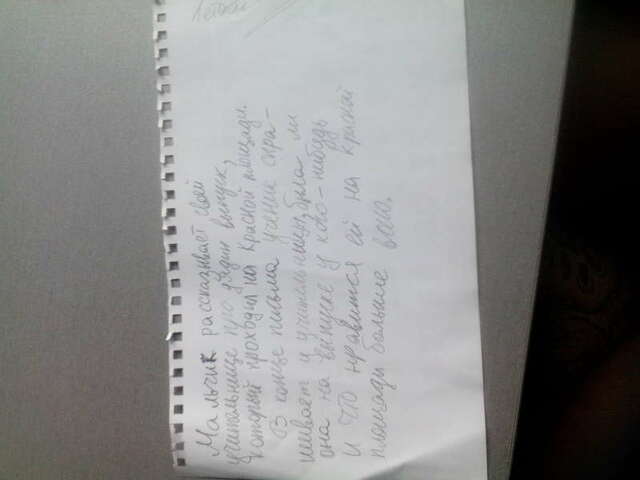 Мальчик рассказывает своей
учительнице про выпуск,
который проходил на Красной площади.
В конце письма ученик спра-
шивает и учительницы, была ли
она на выпуске у кого-нибудь
и что нравится ей на Красной
площади больше всего.